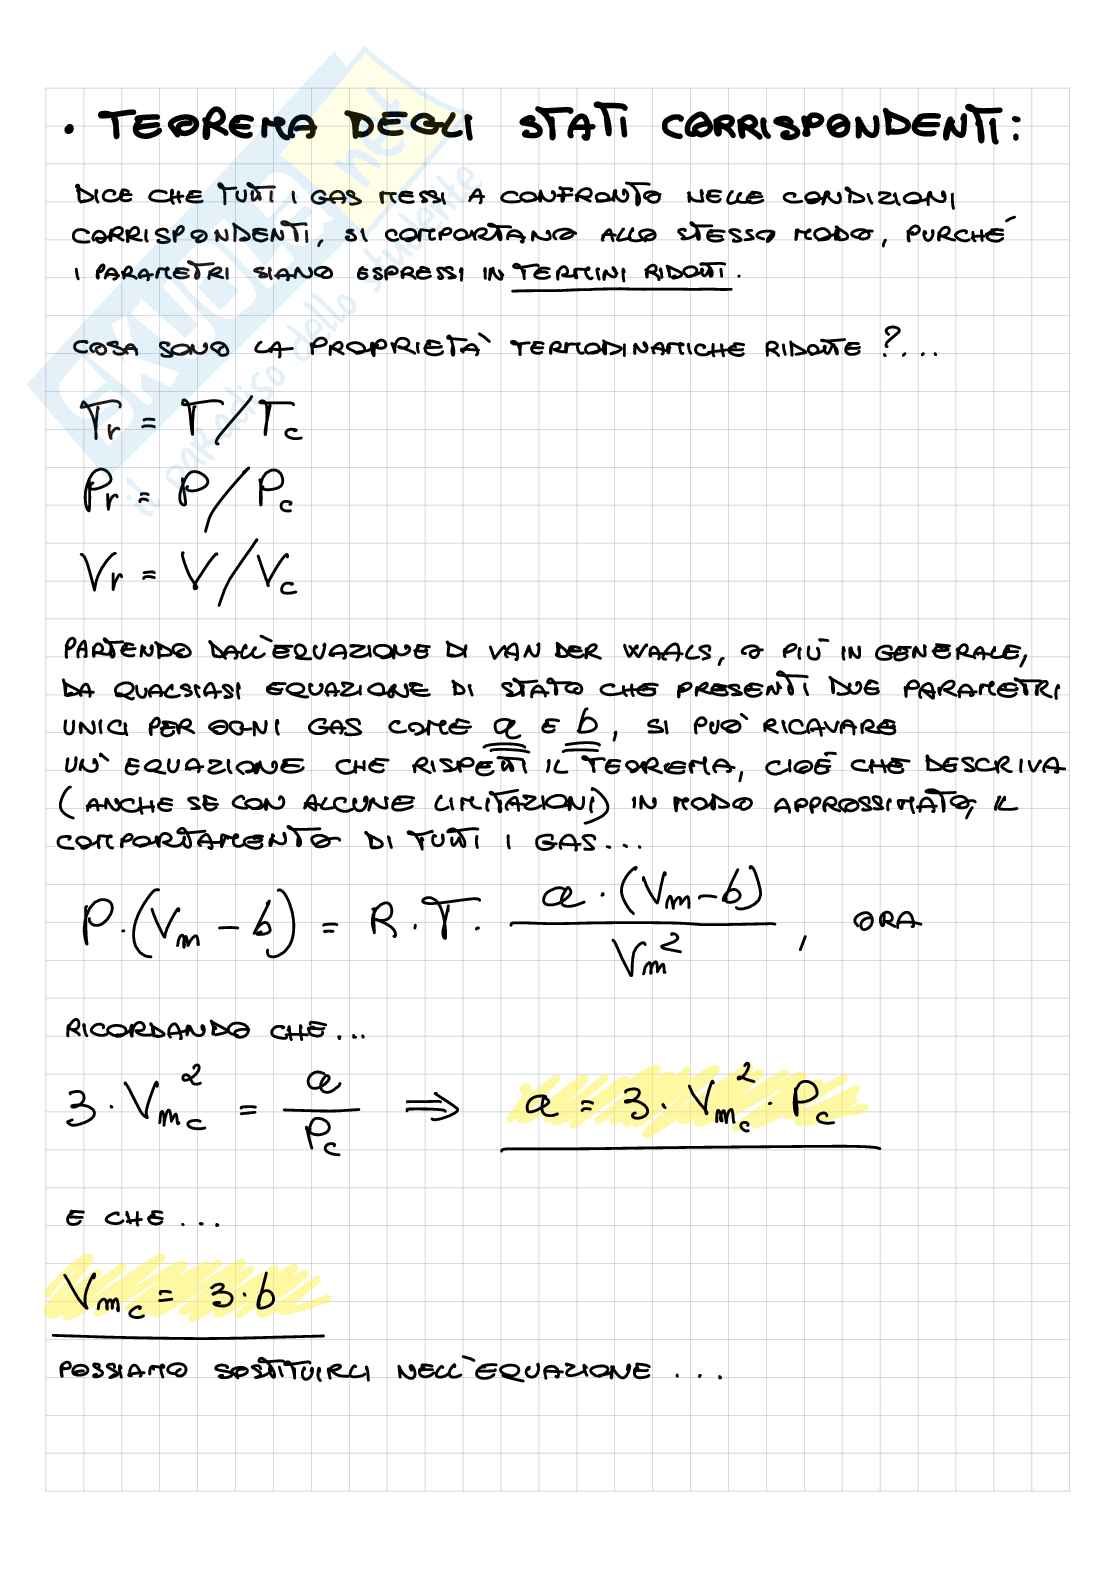 • TEOREMA DEGLI STATI CORRISPONDENTI:
DICE CHE TUTTI I GAS MESSI A CONFRONTO NELLE CONDIZIONI
CORRISPONDENTI, SI COMPORTANO ALLO STESSO MODO, PURCHÉ
I PARAMETRI SIANO ESPRESSI IN TERMINI RIDOTTI.
COSA SONO LA PROPRIETÀ TERMODINAMICHE RIDOTTE ?...
Tr = T/Tc
Pr = P/Pc
Vr = V/Vc
PARTENDO DALL'EQUAZIONE DI VAN DER WAALS, O PIÙ IN GENERALE,
DA QUALSIASI EQUAZIONE DI STATO CHE PRESENTI DUE PARAMETRI
UNICI PER OGNI GAS COME a E b, SI PUÒ RICAVARE
UN'EQUAZIONE CHE RISPETTI IL TEOREMA, CIOÈ CHE DESCRIVA
(ANCHE SE CON ALCUNE LIMITAZIONI) IN MODO APPROSSIMATO, IL
COMPORTAMENTO DI TUTTI I GAS...
P·(Vm - b) = R·T· a·(Vm-b) / Vm², ORA
RICORDANDO CHE...
3·Vmc² = a/Pc ⇒ a = 3·Vmc²·Pc
E CHE ...
Vmc = 3·b
POSSIAMO SOSTITUIRCI NELL'EQUAZIONE ...
SKUOLA.net
il paradiso dello studente